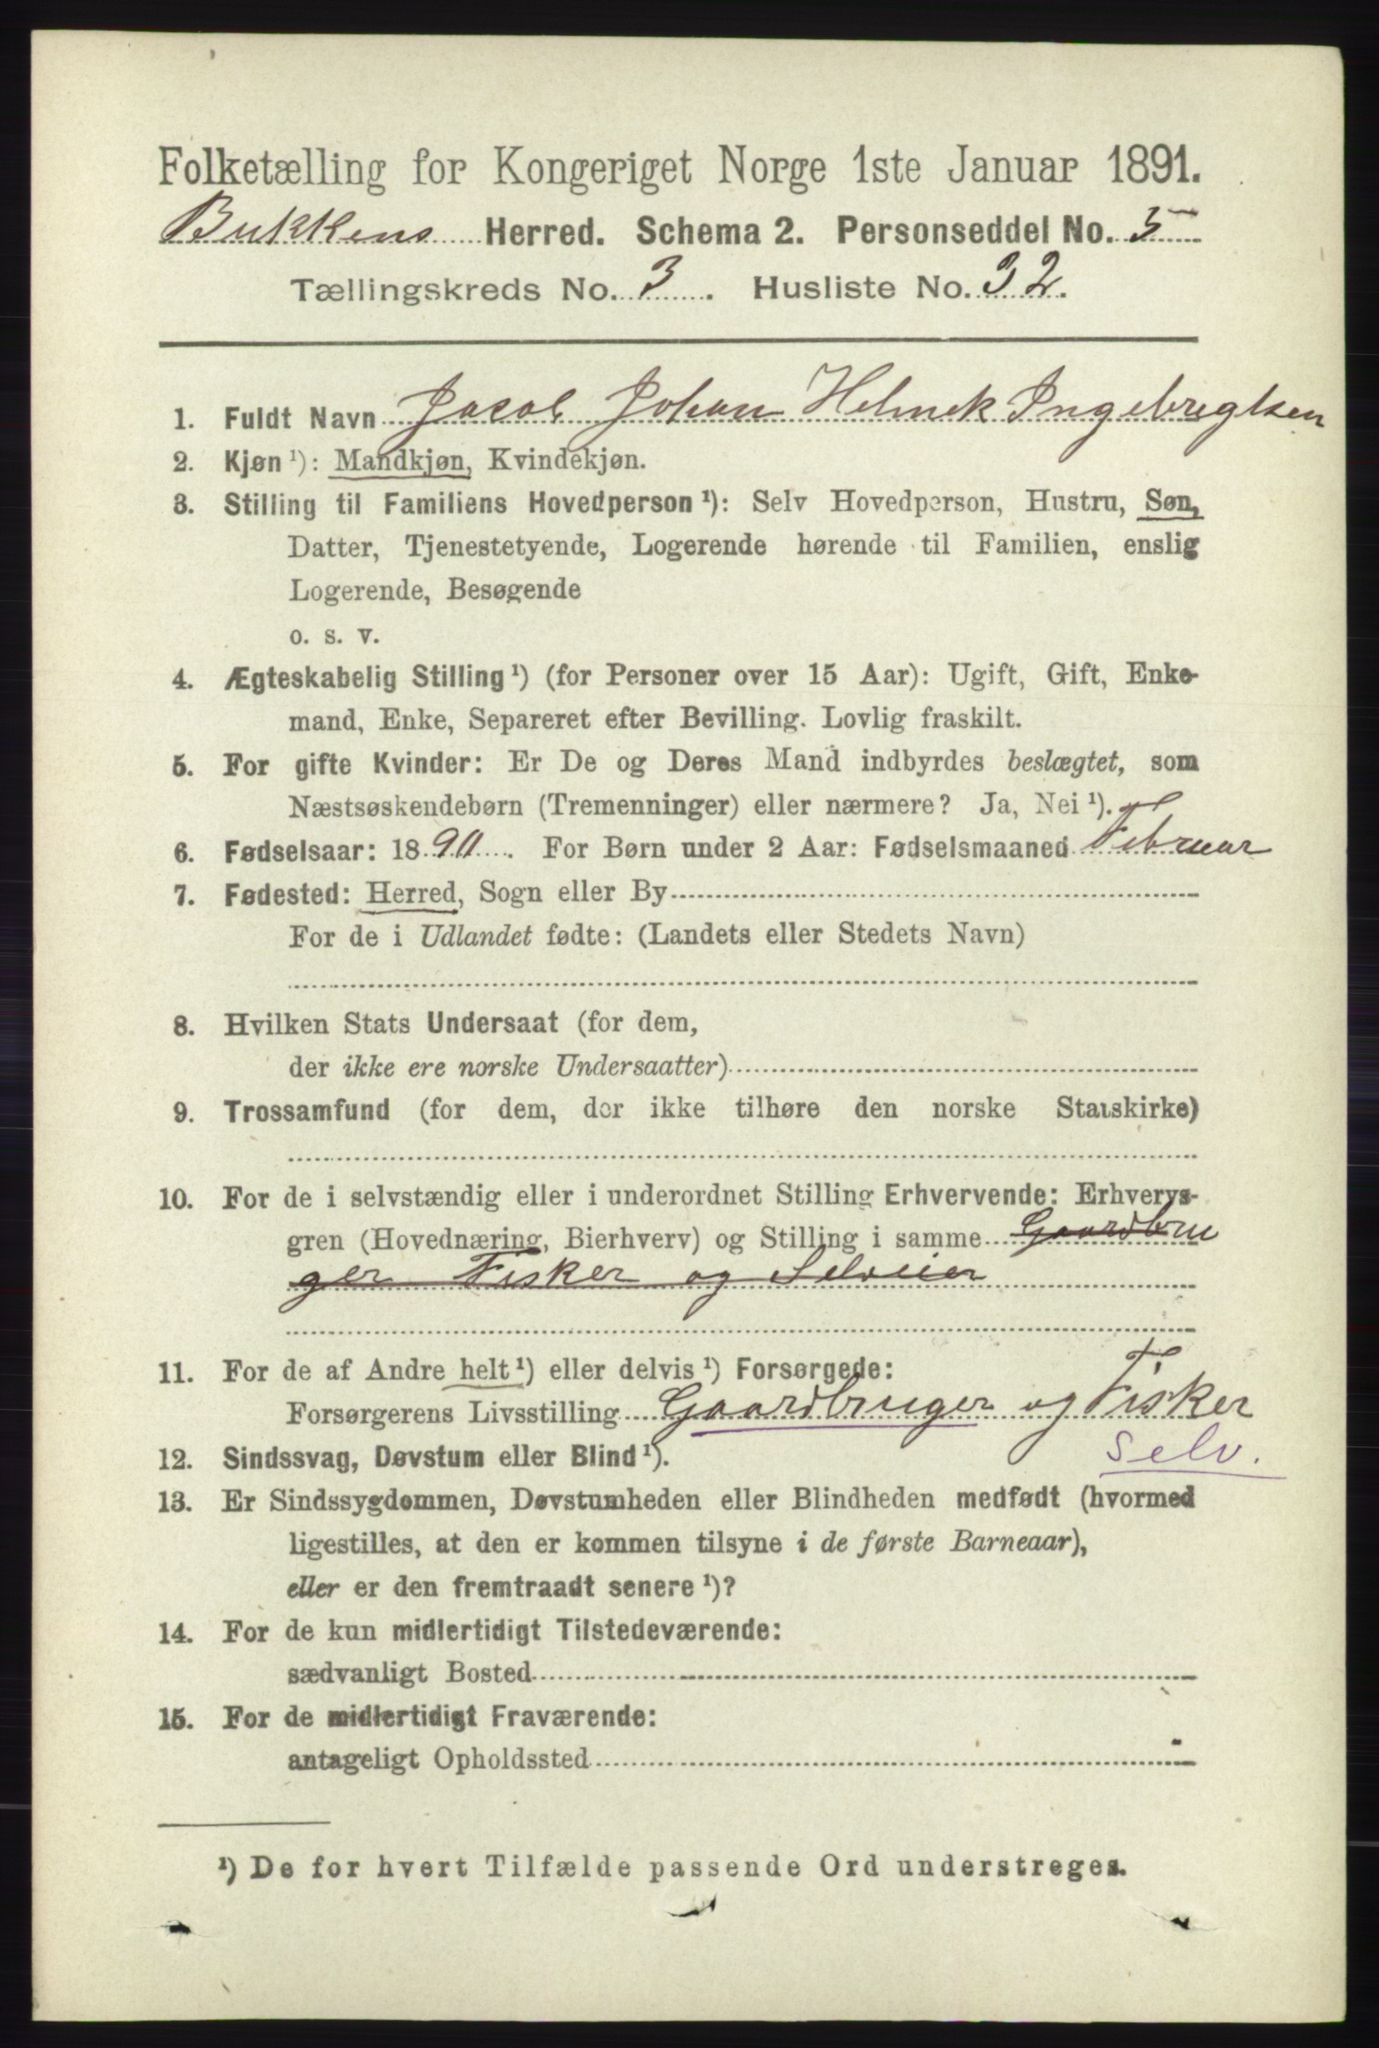 Folketælling for Kongeriget Norge 1ste Januar 1891.
Bukkens Herred. Schema 2. Personseddel No. 5
Tællingskreds No. 3. Husliste No. 32.
1. Fuldt Navn Jacob Johan Helmek Ingebregtsen
2. Kjøn¹): Mandkjøn, Kvindekjøn.
3. Stilling til Familiens Hovedperson¹): Selv Hovedperson, Hustru, Søn,
Datter, Tjenestetyende, Logerende hørende til Familien, enslig
Logerende, Besøgende
o. s. v.
4. Ægteskabelig Stilling¹) (for Personer over 15 Aar): Ugift, Gift, Enke-
mand, Enke, Separeret efter Bevilling. Lovlig fraskilt.
5. For gifte Kvinder: Er De og Deres Mand indbyrdes beslægtet, som
Næstsøskendebørn (Tremenninger) eller nærmere? Ja, Nei¹).
6. Fødselsaar: 1890. For Børn under 2 Aar: Fødselsmaaned Februar
7. Fødested: Herred, Sogn eller By
For de i Udlandet fødte: (Landets eller Stedets Navn)
8. Hvilken Stats Undersaat (for dem,
der ikke ere norske Undersaatter)
9. Trossamfund (for dem, der ikke tilhøre den norske Statskirke)
10. For de i selvstændig eller i underordnet Stilling Erhvervende: Erhvervs-
gren (Hovednæring, Bierhverv) og Stilling i samme Gaardbru
ger Fisker og Selveier
11. For de af Andre helt¹) eller delvis¹) Forsørgede:
Forsørgerens Livsstilling Gaardbruger og Fisker
Selv.
12. Sindssvag, Døvstum eller Blind¹).
13. Er Sindssygdommen, Døvstumheden eller Blindheden medfødt (hvormed
ligestilles, at den er kommen tilsyne i de første Barneaar),
eller er den fremtraadt senere¹)?
14. For de kun midlertidigt Tilstedeværende:
sædvanligt Bosted
15. For de midlertidigt Fraværende:
antageligt Opholdssted
¹) De for hvert Tilfælde passende Ord understreges.